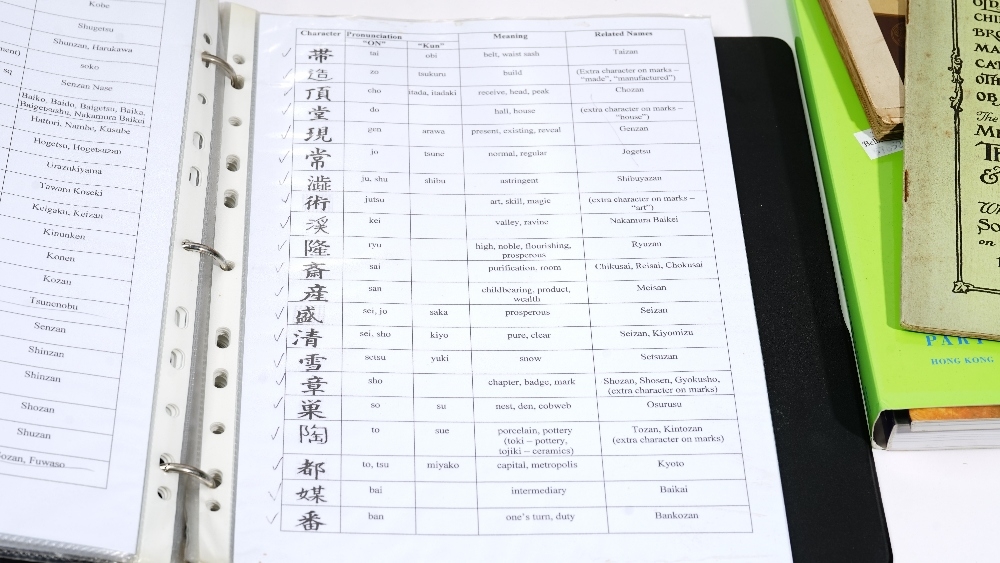 Kobe
Shugetsu
Shunzan, Harukawa
soko
Senzan Nase
(Baiko, Baido, Baigetsu, Baika,
Baigetsushu, Nakamura Baikei
Hattori, Nambe, Kusube
Hogetsu, Hogetsuzan
Urazukiyama
Tawara Koseki
Keigaku, Keizan
Kinunken
Konen
Kozan
Tsunenobu
Senzan
Shinzan
Shinzan
Shozan
Shuzan
Fuwaso
Character Pronunciation Meaning Related Names
"ON" "Kun"
帯 tai obi belt, waist sash Taizan
造 zo tsukuru build (Extra character on marks –
"made", "manufactured")
頂 cho itada, itadaki receive, head, peak Chozan
堂 do hall, house (extra character on marks –
"house")
現 gen arawa present, existing, reveal Genzan
常 jo tsune normal, regular Jogetsu
澁 ju, shu shibu astringent Shibuyazan
術 jutsu art, skill, magic (extra character on marks –
"art")
渓 kei valley, ravine Nakamura Baikei
隆 ryu high, noble, flourishing, Ryuzan
prosperous
斎 sai purification, room Chikusai, Reisai, Chokusai
産 san childbearing, product, Meisan
wealth
盛 sei, jo saka prosperous Seizan
清 sei, sho kiyo pure, clear Seizan, Kiyomizu
雪 setsu yuki snow Setsuzan
章 sho chapter, badge, mark Shozan, Shosen, Gyokusho,
(extra character on marks)
巣 so su nest, den, cobweb Osurusu
陶 to sue porcelain, pottery Tozan, Kintozan
(toki – pottery, (extra character on marks)
tojiki – ceramics)
都 to, tsu miyako capital, metropolis Kyoto
媒 bai intermediary Baikai
番 ban one's turn, duty Bankozan
The
&
on
PART
HONG KONG